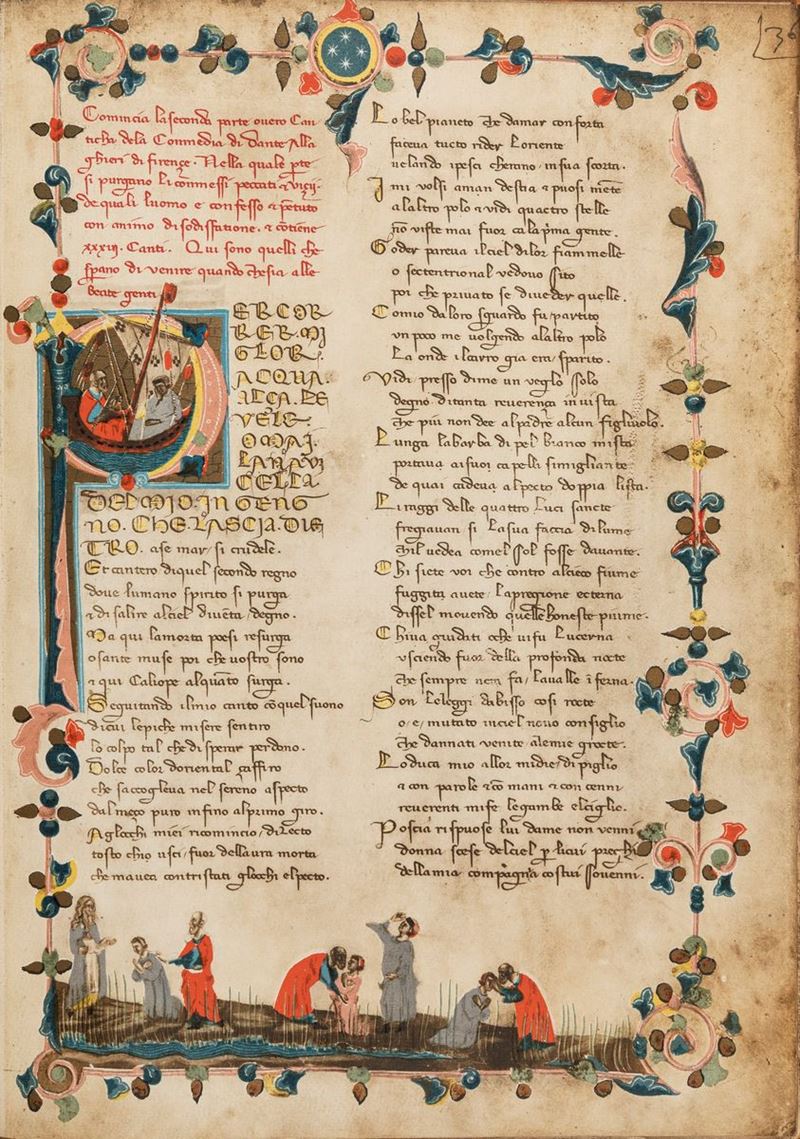 36
Comincia la seconda parte overo Can
ticha dela Commedia di dante Alla
ghieri di firençe. Nella quale pte
si purgano li commessi peccati & vicij.
de quali luomo e confesso & petuto
con animo di sodisfatione. & cotiene
xxxiij. Canti. Qui sono quelli che
sperano di venire quando chesia alle
beate genti
PER COR
RER. MI
GLOR.
ACQUA.
ALÇA. LE
VELE.
OMAI.
LA NAVI
CELLA
DEL MIO. IN GENG
NO. CHE. LASCIA. DIE
TRO. a se mar si crudele.
Et cantero di quel secondo regno
dove lumano spirito si purga
& di salire al ciel diveta degno.
Ma qui la morta poesi resurga
o sante muse poi che vostro sono
& qui Caliope alquato surga.
Seguitando il mio canto co quel suono
di cui le piche misere sentiro
lo colpo tal che di sperar perdono.
Dolce color doriental çaffiro
che saccogleva nel sereno aspecto
dal meço puro infino al primo giro.
Agliocchi miei ricomincio dilecto
tosto chio usci fuor dellaura morta
che mavea contristati gliocchi el pecto.
Lo bel pianeto che damar conforta
faceva tucto rider loriente
velando i pesci cherano in sua scorta.
I mi volsi a man destra & puosi mete
alaltro polo & vidi quactro stelle
no viste mai fuor cala pma gente.
Goder pareva il ciel di lor fiammelle
o sectentrional vedovo sito
poi che privato se di veder quelle.
Comio da loro sguardo fu partito
un poco me volgendo alaltro polo
La onde il carro gia era sparito.
Vidi presso di me un veglo solo
degno di tanta reverença in vista
che piu non dee al padre alcun figliuolo.
Lunga la barba di pel bianco mista
portava ai suoi capelli simigliante
de quai cadeva al pecto doppia lista.
Li raggi delle quattro luci sancte
fregiavan si la sua faccia di lume
chil vedea comel sol fosse davante.
Chi siete voi che contro al cieco fiume
fuggita avete la pregione ecterna
dissel movendo quelle honeste piume.
Chi va guidati o che vi fu lucerna
usciendo fuor della profonda nocte
che sempre nera fa la valle iferna.
Son le leggi dabisso cosi rocte
o e mutato in ciel novo consiglio
che dannati venite ale mie grocte.
Lo duca mio allor mi die di piglio
& con parole & co mani & con cenni
reverenti mi fe le gambe el ciglio.
Poscia rispuose lui da me non venni
donna scese del ciel p li cui preghi
della mia compagna costui sovenni.